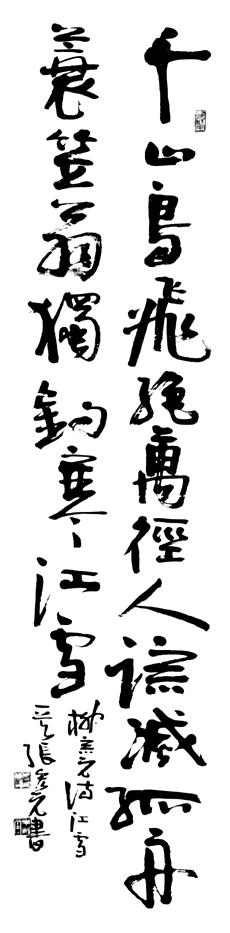 千山鳥飛絶萬徑人踪滅孤舟
蓑笠翁獨釣寒江雪
柳宗元诗江雪
張元書